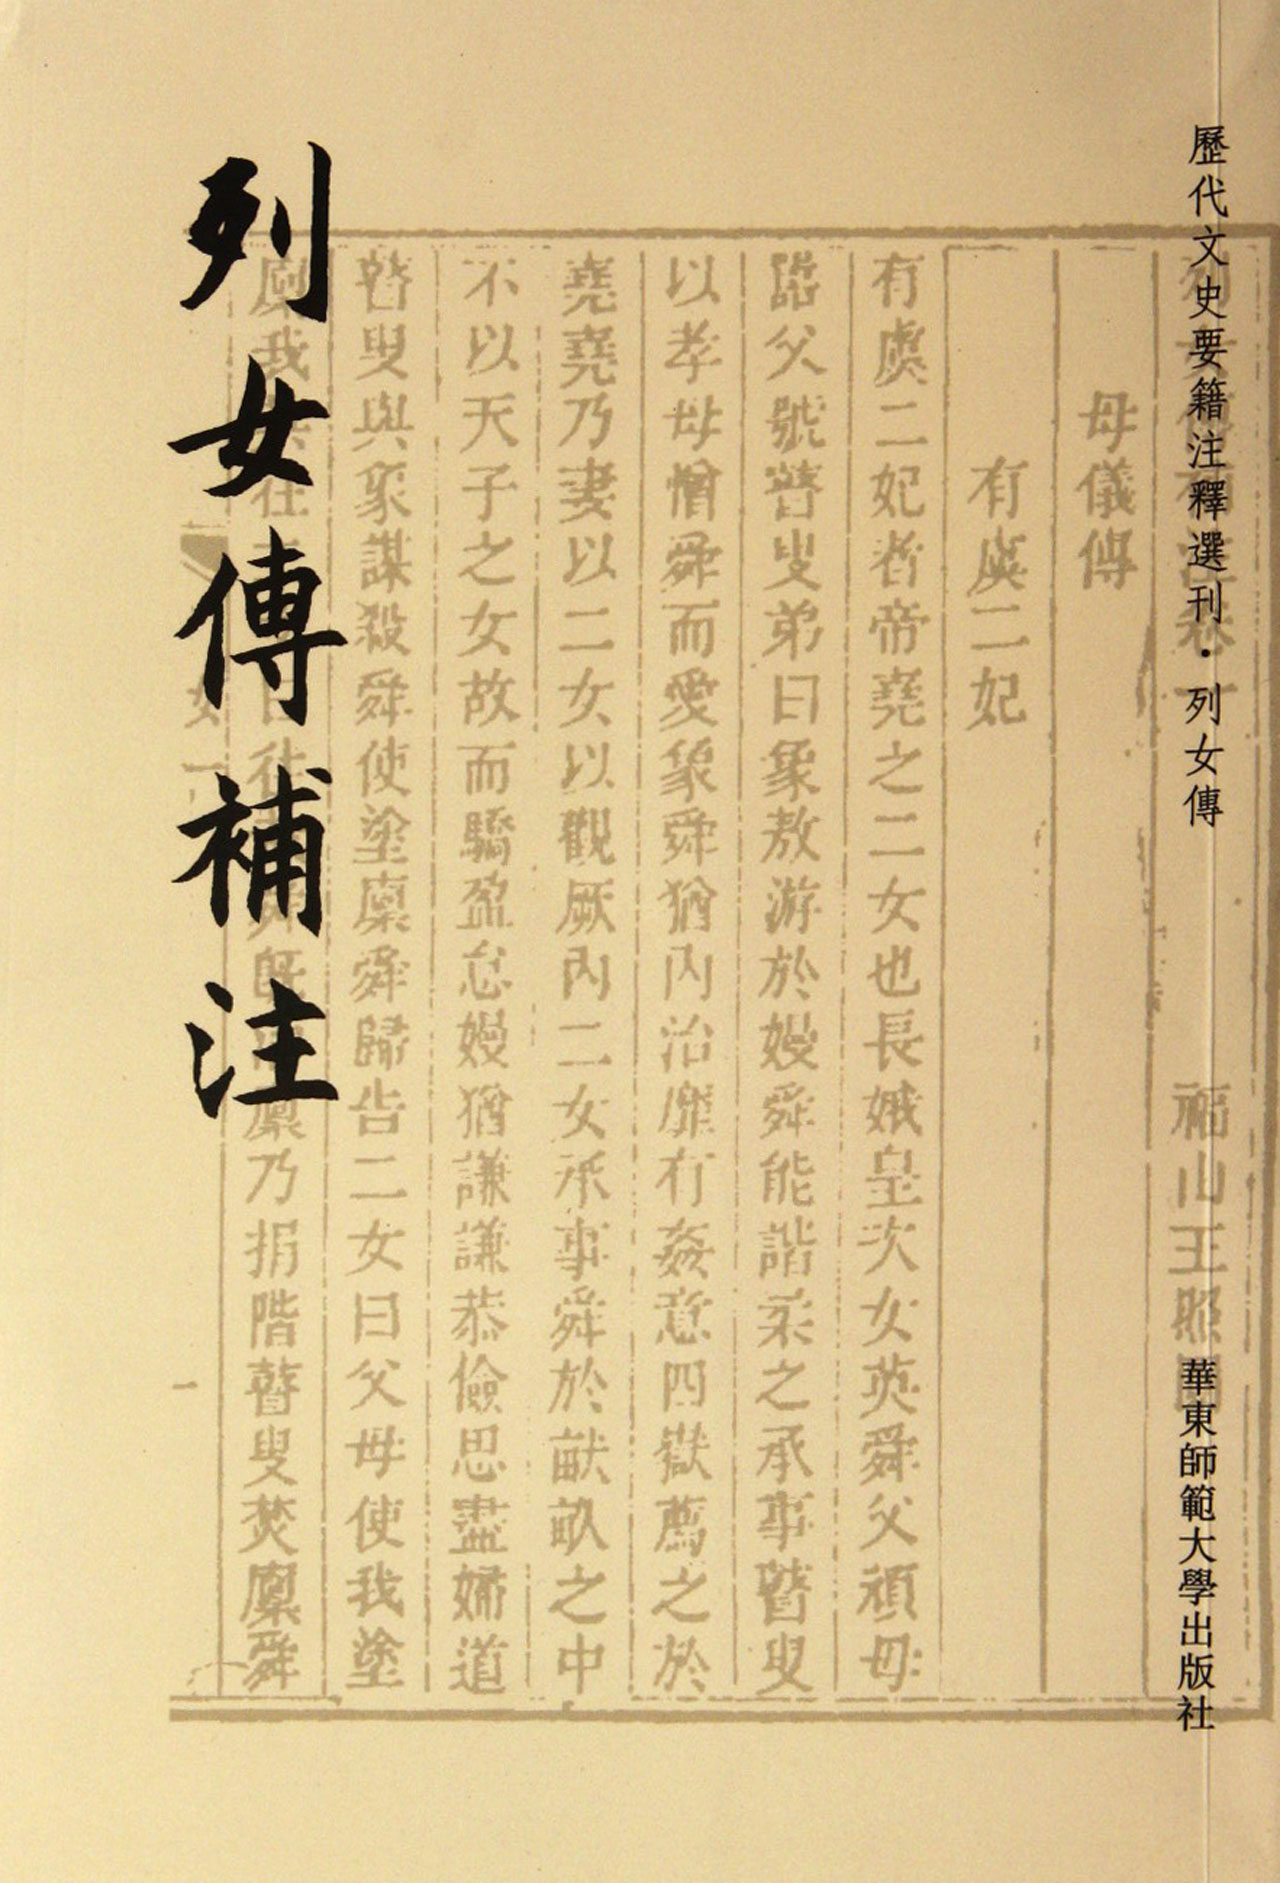 歷代文史要籍注釋選刊·列女傳
華東師範大學出版社
福山王照圓
母儀傳
有虞二妃
有虞二妃者帝堯之二女也長娥皇次女英舜父頑母
嚚父號瞽叟弟曰象敖游於嫚舜能諧柔之承事瞽叟
以孝母憎舜而愛象舜猶內治靡有姦意四嶽薦之於
堯堯乃妻以二女以觀厥內二女承事舜於畎畝之中
不以天子之女故而驕盈怠嫚猶謙謙恭儉思盡婦道
瞽叟與象謀殺舜使塗廩舜歸告二女曰父母使我塗
廩我
往
廩乃捐階瞽叟焚廩舜
列女傳補注